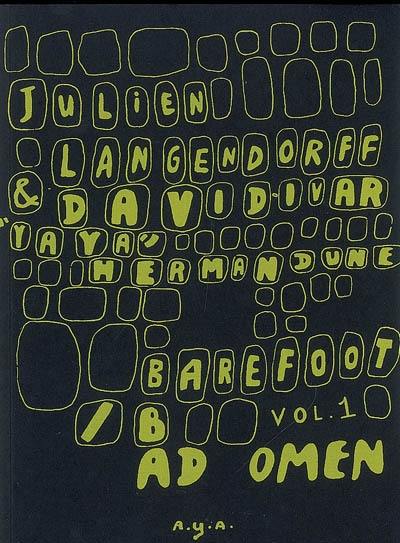 JULiEN
LANGENDORFF
& DAVID-IVAR
"YAYA"
HERMAN DUNE
BAREFOOT
/ B VOL.1
AD OMEN
A.y.A.